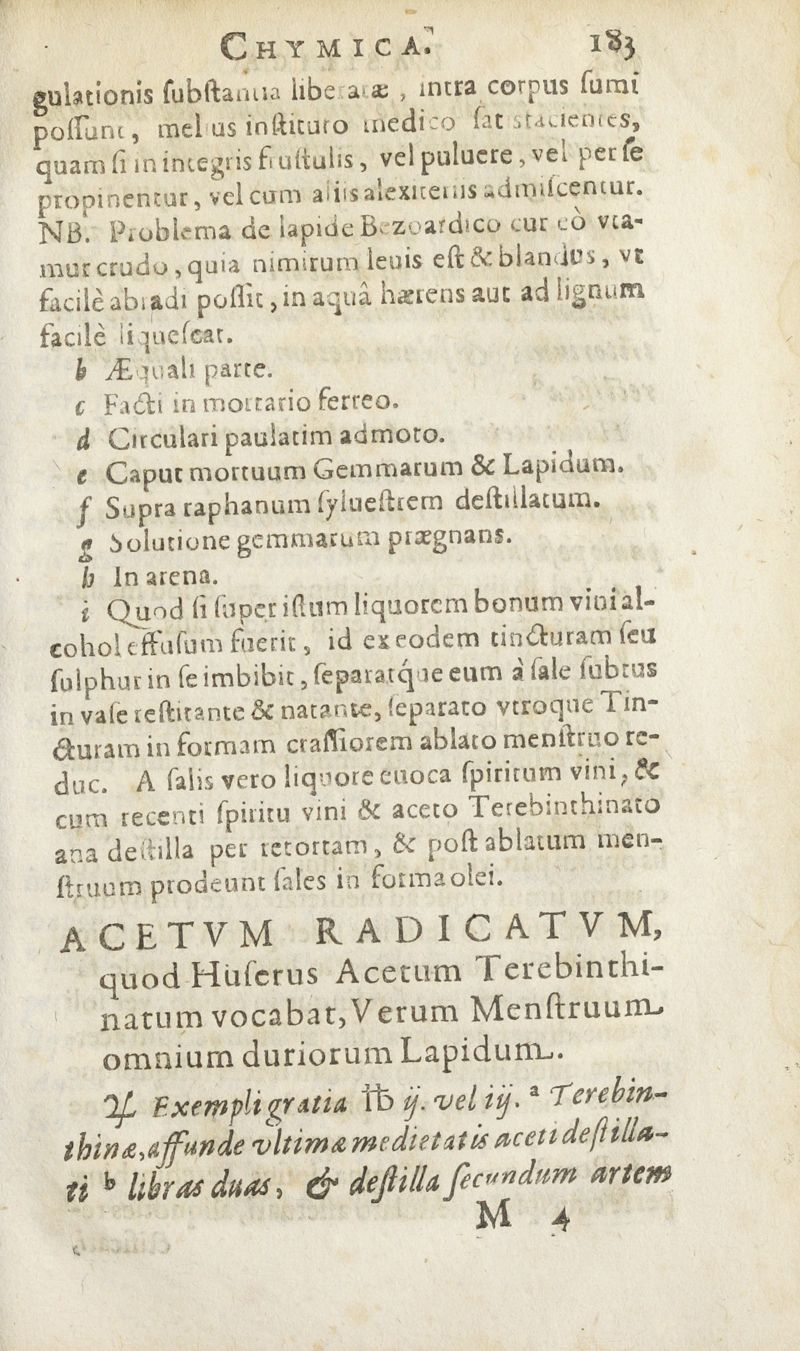 CHYMICA. 183
gulationis ſubſtantia liberatæ, intra corpus ſumi
poſſunt, melius inſtituto medico ſatisfacientes,
quam ſi in integris fruſtulis, vel puluere, vel per ſe
propinentur, vel cum aliis alexiteriis admiſcentur.
NB. Problema de lapide Bezoardico cur eò vta-
mur crudo, quia nimirum leuis eſt & blandus, vt
facilè abradi poſſit, in aquâ hærens aut ad lignum
facilè liqueſcat.
b Æquali parte.
c Facti in mortario ferreo.
d Circulari paulatim admoto.
e Caput mortuum Gemmarum & Lapidum.
f Supra raphanum ſylueſtrem deſtillatum.
g Solutione gemmarum prægnans.
h In arena.
i Quod ſi ſuper iſtum liquorem bonum vini al-
cohol effuſum fuerit, id ex eodem tincturam ſeu
ſulphur in ſe imbibit, ſeparatq́ue eum à ſale ſubtus
in vaſe reſtitante & natante, ſeparato vtroque Tin-
cturam in formam craſſiorem ablato menſtruo re-
duc. A ſalis vero liquore euoca ſpiritum vini, &
cum recenti ſpiritu vini & aceto Terebinthinato
ana deſtilla per retortam, & poſt ablatum men-
ſtruum prodeunt ſales in forma olei.
ACETVM RADICATVM,
quod Huſerus Acetum Terebinthi-
natum vocabat, Verum Menſtruum
omnium duriorum Lapidum.
♃ Exempli gratia ℔ ij. vel iij. ª Terebin-
thinæ, affunde vltimæ medietatis aceti deſtilla-
ti ᵇ libras duas, & deſtilla ſecundum artem
M 4